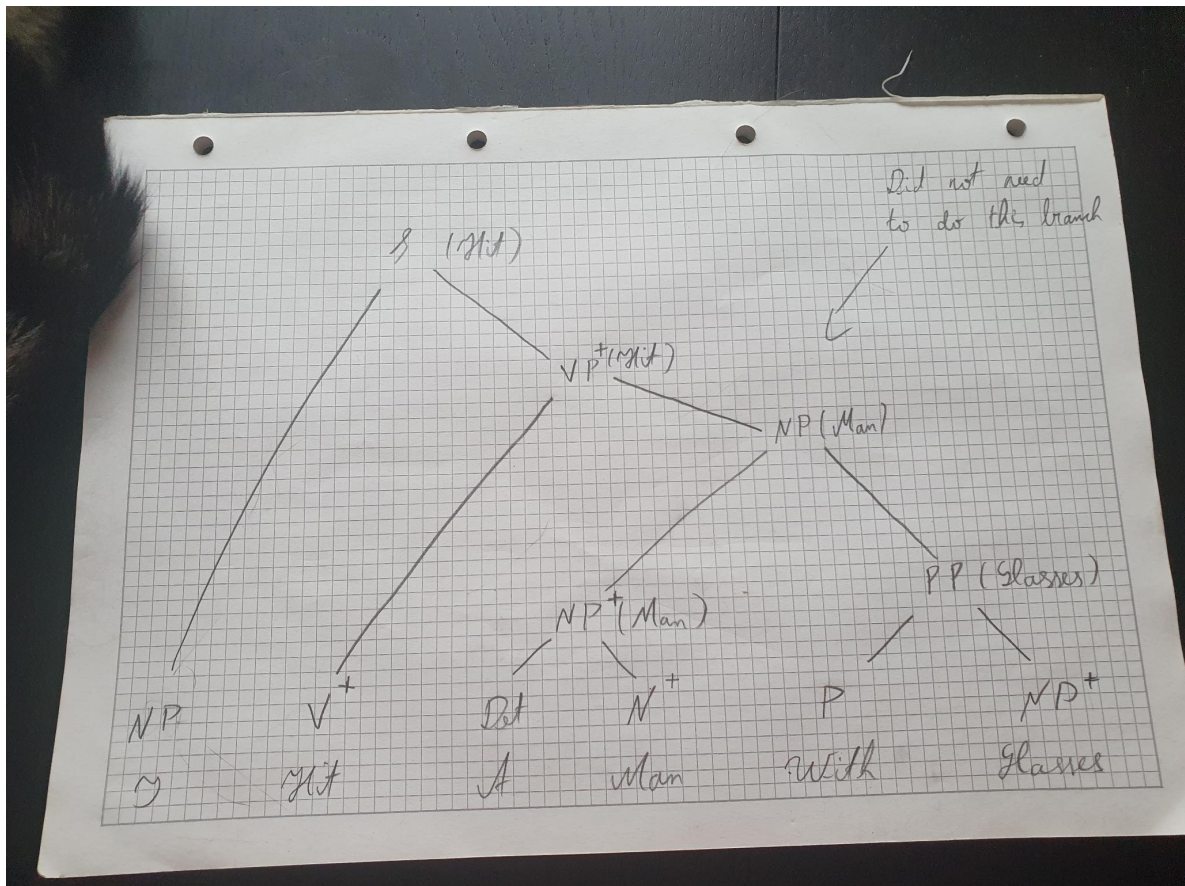 Did not need
to do this branch
S (Hit)
VP+(Hit)
NP (Man)
PP (Glasses)
NP+(Man)
NP V+ Det N+ P NP+
I Hit A Man With Glasses